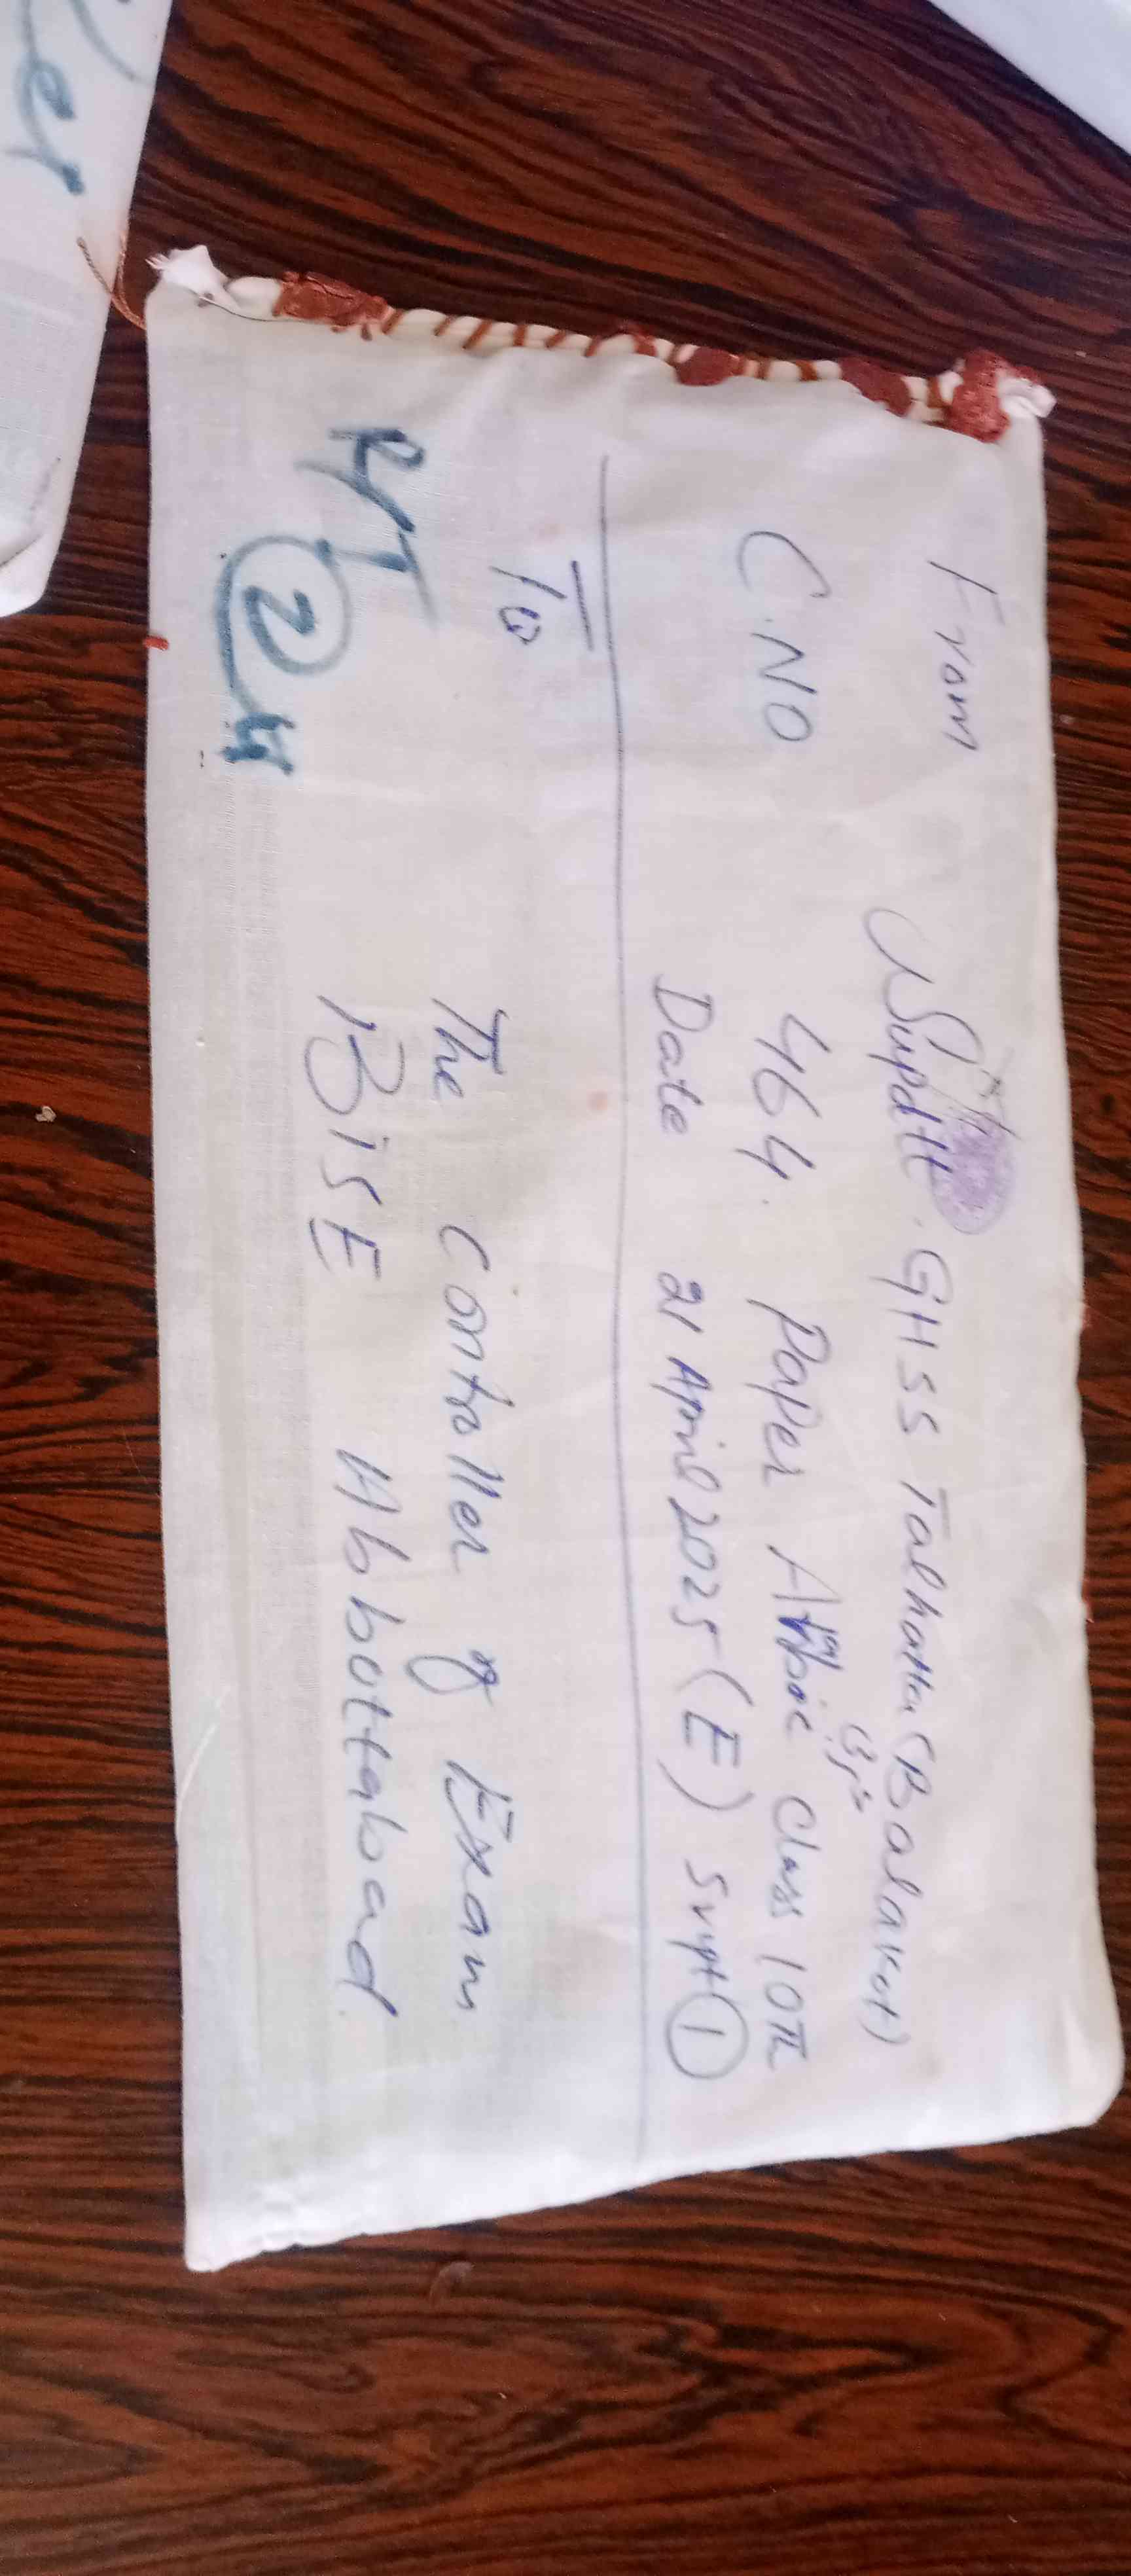 From Supdtt. GHSS Talhatta (Balakot)
C.NO 464. Paper Arabic Class 10th
Date 21 April 2025 (E) Supt 1
To
The Controller of Exam
BISE Abbottabad